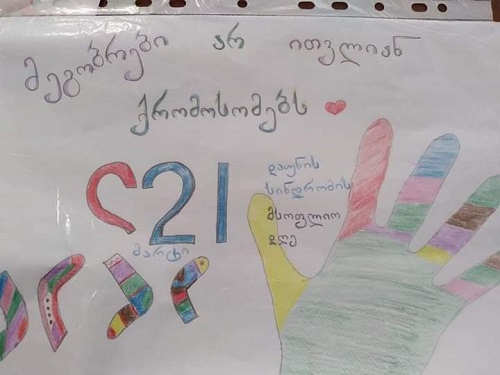 მეგობრები არ ითვლიან
ქრომოსომებს
21
მარტი
დაუნის
სინდრომის
მსოფლიო
დღე